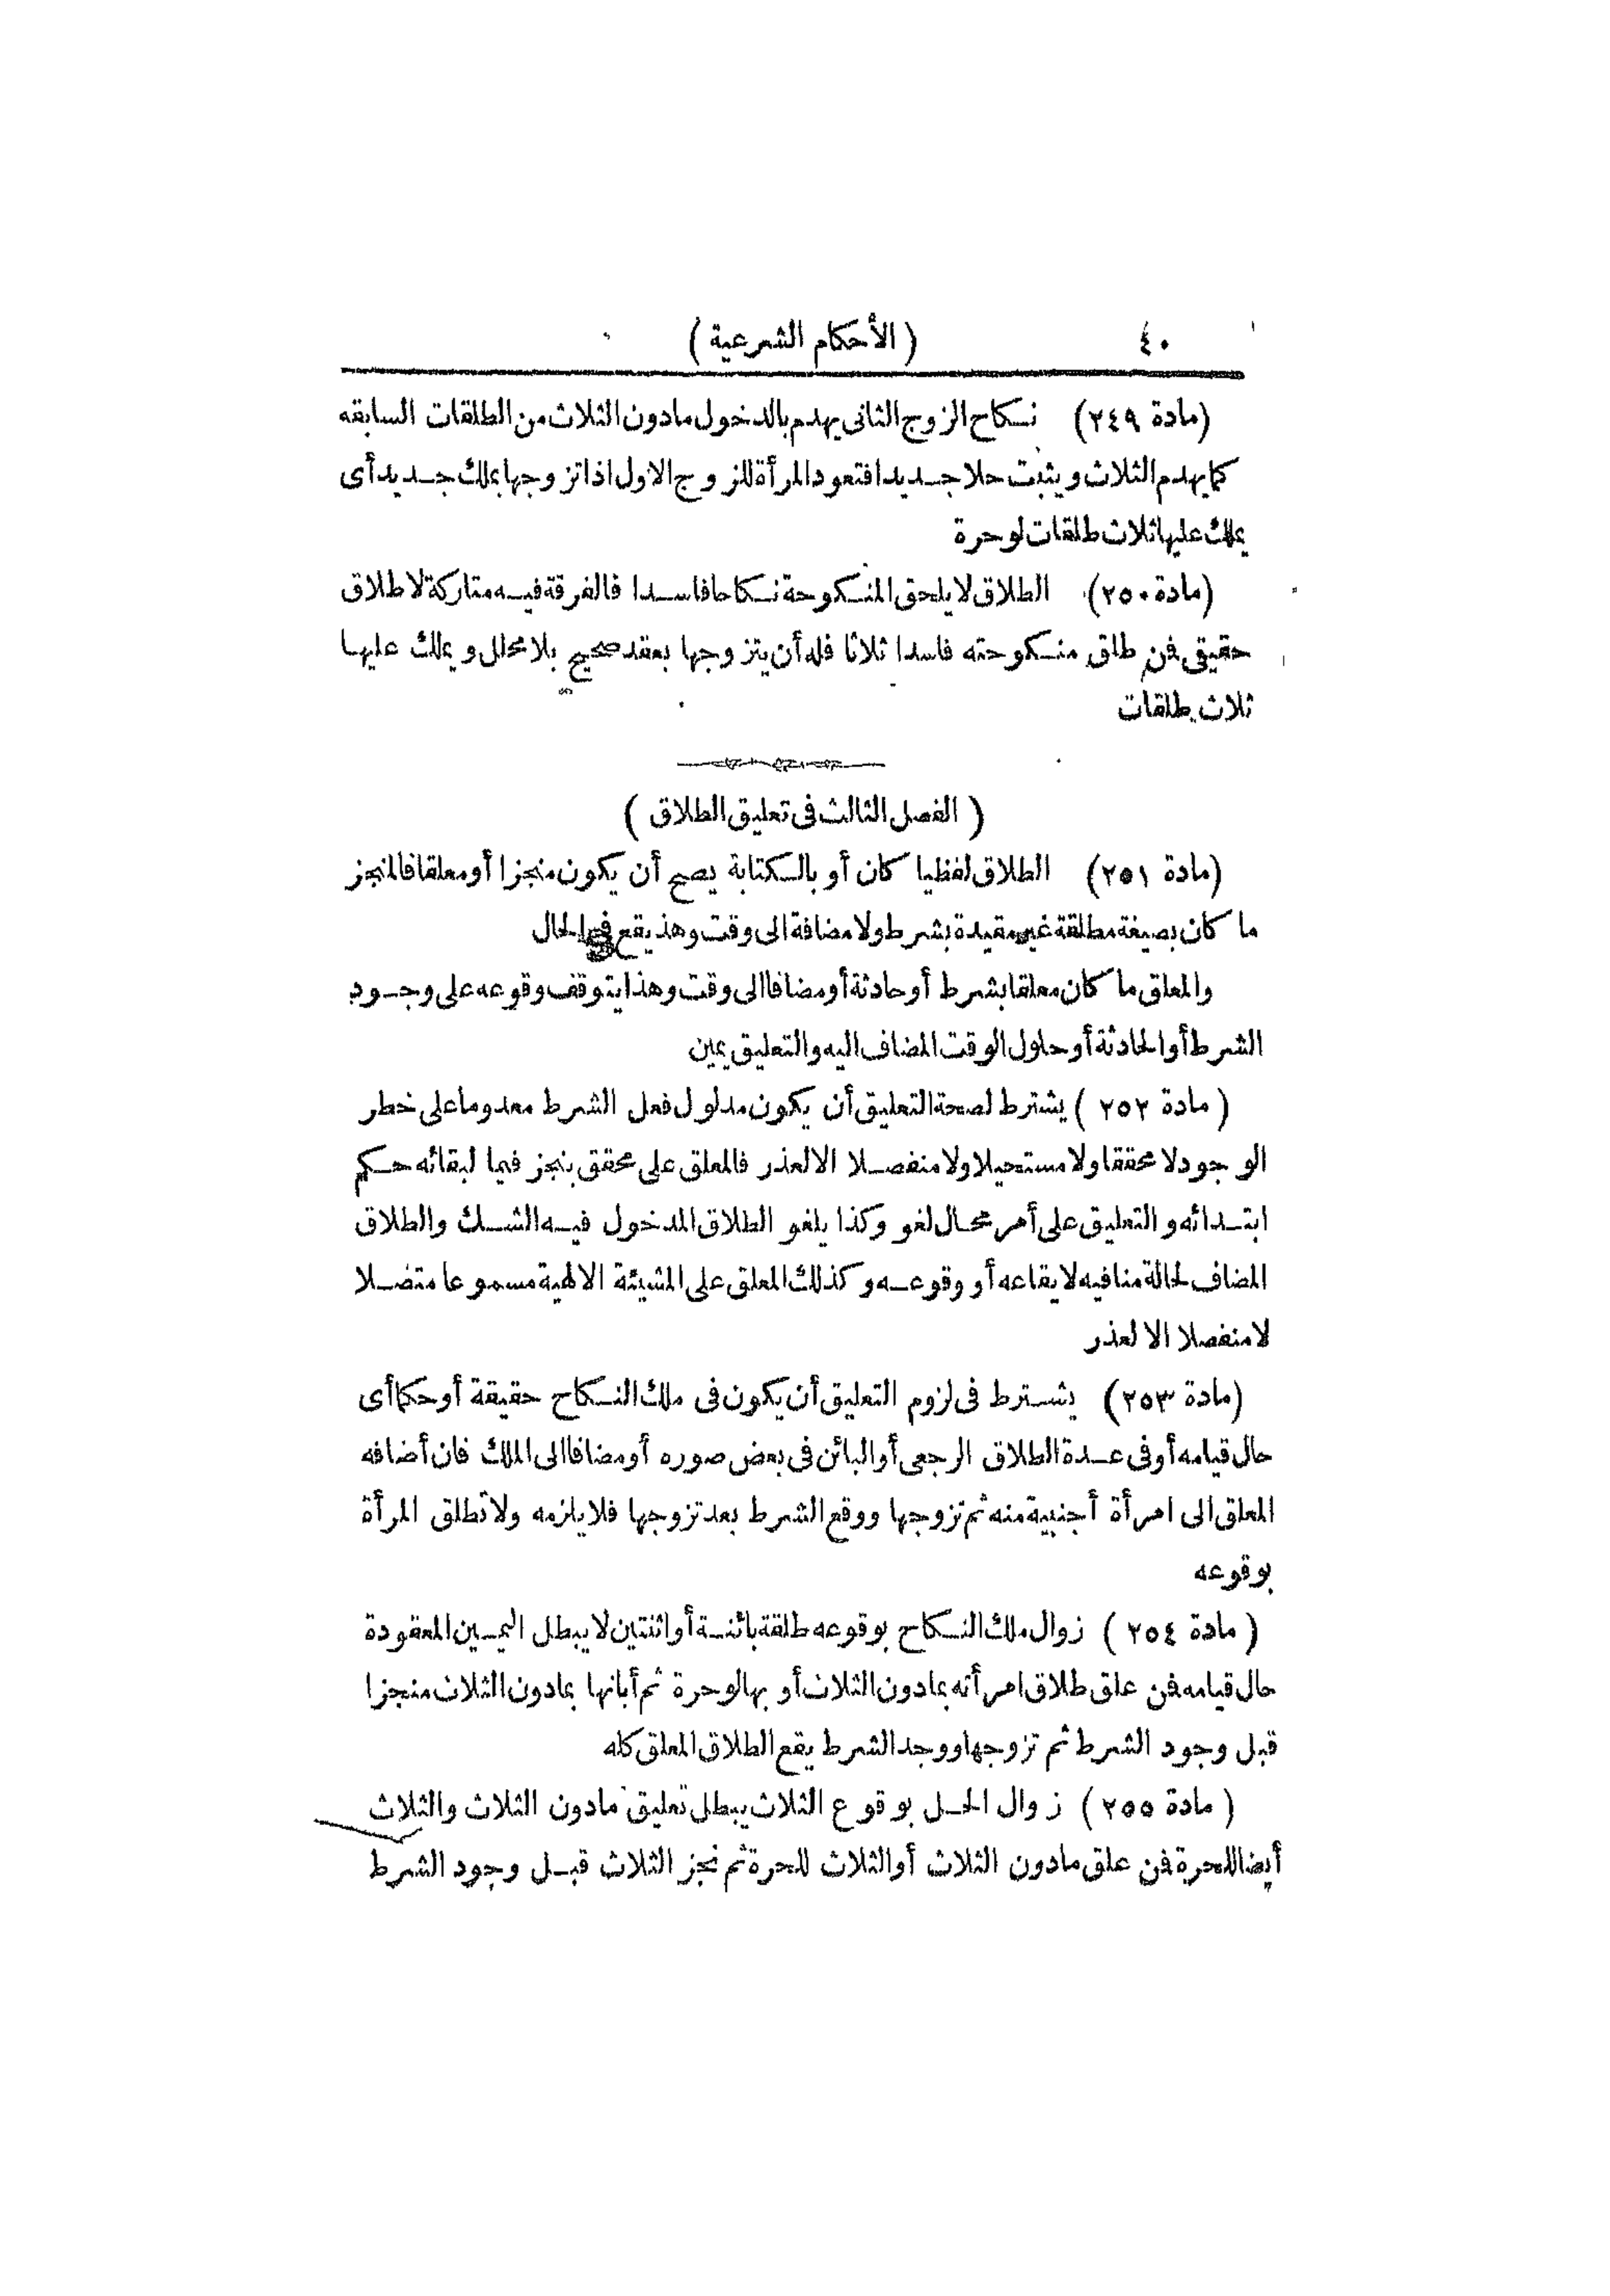 ٤٠ ( الأحكام الشرعية )
(مادة ٢٤٩) نكاح الزوج الثانى يهدم بالدخول مادون الثلاث من الطلقات السابقه
كما يهدم الثلاث ويثبت حلا جديدا فتعود المرأة للزوج الاول اذا تزوجها بملك جديد أى
يملك عليها ثلاث طلقات لو حرة
(مادة ٢٥٠) الطلاق لا يلحق المنكوحة نكاحا فاسدا فالفرقة فيه متاركة لا طلاق
حقيقى فمن طلق منكوحته فاسدا ثلاثا فله أن يتزوجها بعقد صحيح بلا محلل ويملك عليها
ثلاث طلقات
( الفصل الثالث فى تعليق الطلاق )
(مادة ٢٥١) الطلاق لفظيا كان أو بالكتابة يصح أن يكون منجزا أو معلقا فالمنجز
ما كان بصيغة مطلقة غير مقيدة بشرط ولا مضافة الى وقت وهذ يقع فى الحال
والمعلق ما كان معلقا بشرط أو حادثة أو مضافا الى وقت وهذا يتوقف وقوعه على وجود
الشرط أو الحادثة أو حلول الوقت المضاف اليه والتعليق يمين
( مادة ٢٥٢ ) يشترط لصحة التعليق أن يكون مدلول فعل الشرط معدوما على خطر
الوجود لا محققا ولا مستحيلا ولا منفصلا الا لعذر فالمعلق على محقق ينجز فيما لبقائه حكم
ابتدائه والتعليق على أمر محال لغو وكذا يلغو الطلاق المدخول فيه الشك والطلاق
المضاف لحالة منافيه لايقاعه أو وقوعه وكذلك المعلق على المشيئة الالهية مسموعا متصلا
لا منفصلا الا لعذر
(مادة ٢٥٣) يشترط فى لزوم التعليق أن يكون فى ملك النكاح حقيقة أو حكما أى
حال قيامه أو فى عدة الطلاق الرجعى أو البائن فى بعض صوره أو مضافا الى الملك فان أضافه
المعلق الى امرأة أجنبية منه ثم تزوجها ووقع الشرط بعد تزوجها فلا يلزمه ولا تطلق المرأة
بوقوعه
( مادة ٢٥٤ ) زوال ملك النكاح بوقوعه طلقة بائنة أو اثنتين لا يبطل اليمين المعقودة
حال قيامه فمن علق طلاق امرأته بمادون الثلاث أو بها لو حرة ثم أبانها بمادون الثلاث منجزا
قبل وجود الشرط ثم تزوجها ووجد الشرط يقع الطلاق المعلق كله
( مادة ٢٥٥ ) زوال الحل بوقوع الثلاث يبطل تعليق مادون الثلاث والثلاث
أيضا للحرة فمن علق مادون الثلاث أو الثلاث للحرة ثم نجز الثلاث قبل وجود الشرط